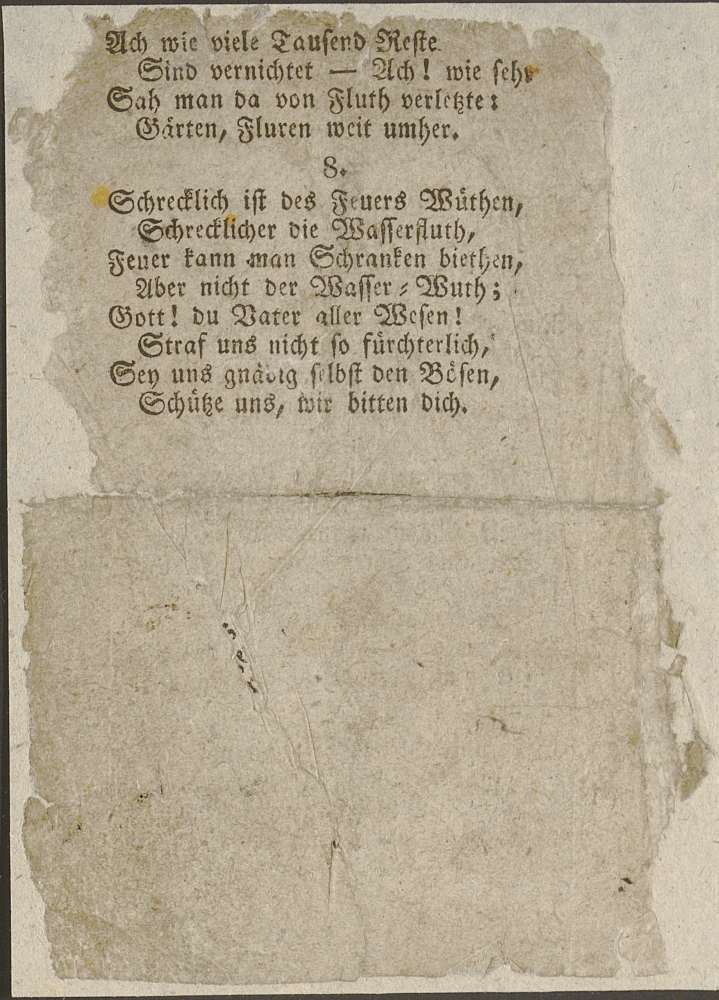 Ach wie viele Tausend Reste
Sind vernichtet — Ach! wie sehr
Sah man da von Fluth verletzte:
Gärten, Fluren weit umher.
8.
Schrecklich ist des Feuers Wüthen,
Schrecklicher die Wasserfluth,
Feuer kann man Schranken biethen,
Aber nicht der Wasser-Wuth;
Gott! du Vater aller Wesen!
Straf uns nicht so fürchterlich,
Sey uns gnädig selbst den Bösen,
Schütze uns, wir bitten dich.